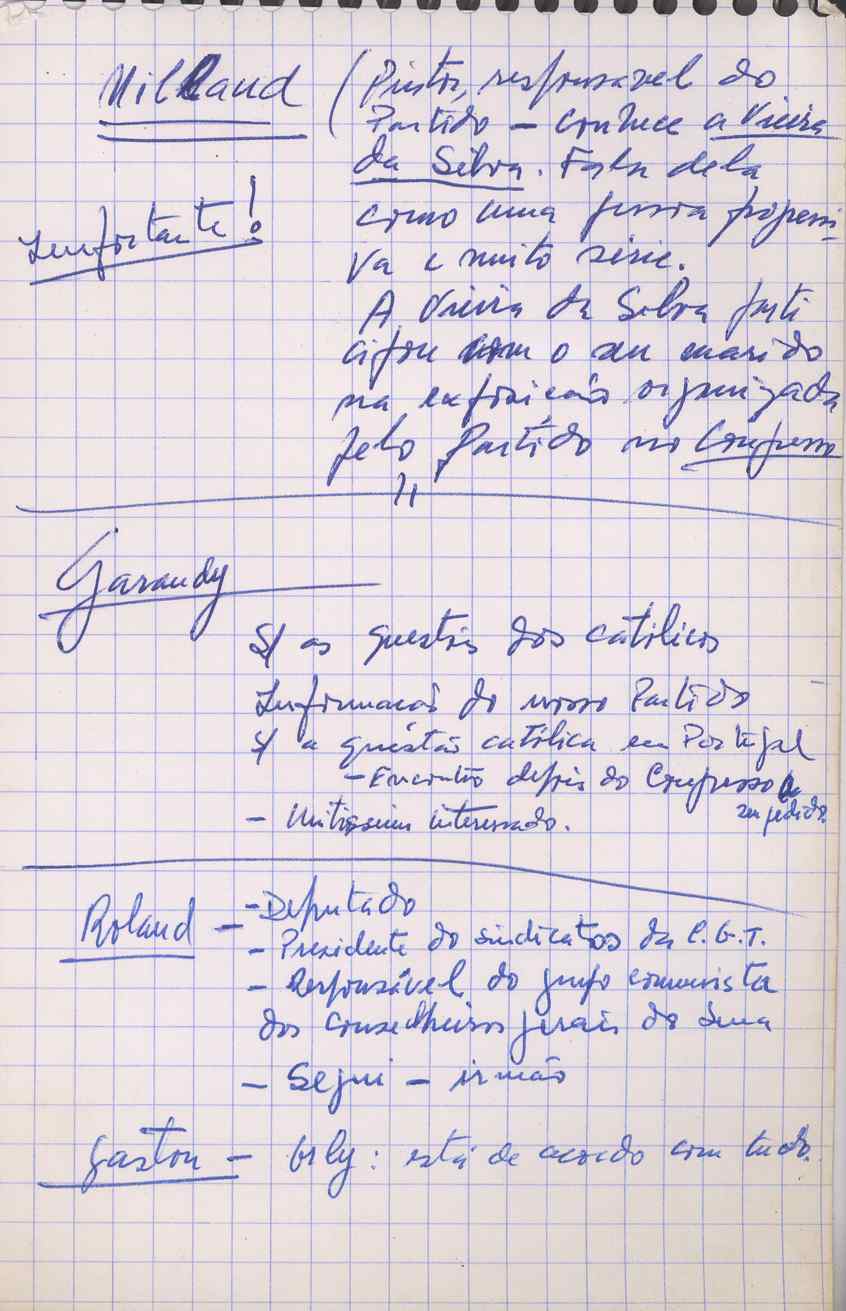 Milhaud (Pintor, responsável do
Partido — conhece a Vieira
da Silva. Fala dela
Importante!
como uma pessoa progressi-
va e muito séria.
A Vieira da Silva parti
cipou com o seu marido
na exposição organizada
pelo Partido no Congresso
Garaudy
S/ as questões dos católicos
Informação do nosso Partido
S/ a questão católica em Portugal
— Encontro depois do Congresso a
seu pedido.
— interessado.
Roland — - Deputado
- Presidente do sindicatos da C.G.T.
- Responsável do grupo comunista
dos conselheiros gerais do Sena
— Segui — irmão
Gaston — : está de acordo com tudo.